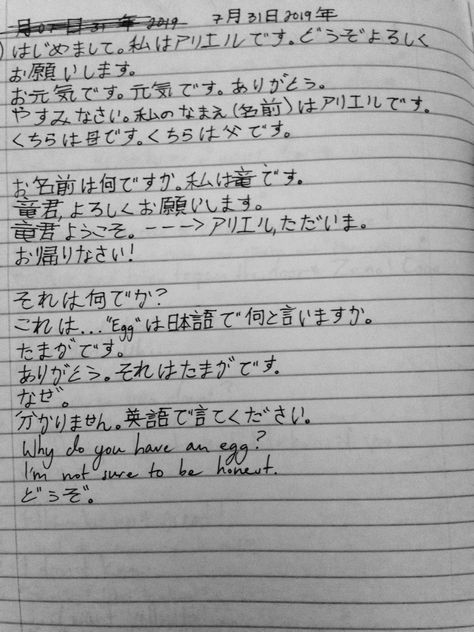 月07日31年2019 7月31日2019年
) はじめまして。私はアリエルです。どうぞよろしく
お願いします。
お元気です。元気です。ありがとう。
やすみなさい。私のなまえ(名前)はアリエルです。
くちらは母です。くちらは父です。
お名前は何ですか。私は竜です。
竜君,よろしくお願いします。
竜君ようこそ。---->アリエル,ただいま。
お帰りなさい!
それは何でか?
これは..."Egg"は日本語で何と言いますか。
たまがです。
ありがとう。それはたまがです。
なぜ。
分かりません。英語で言てください。
Why do you have an egg?
I'm not sure to be honest.
どうぞ。